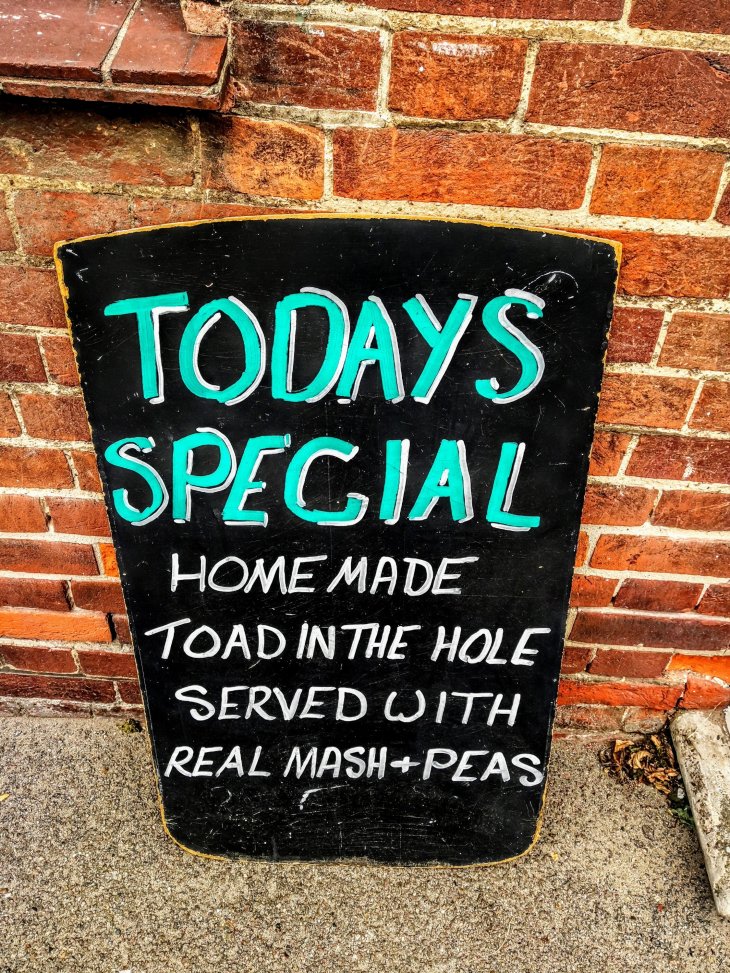 TODAYS
SPECIAL
HOME MADE
TOAD IN THE HOLE
SERVED WITH
REAL MASH+PEAS